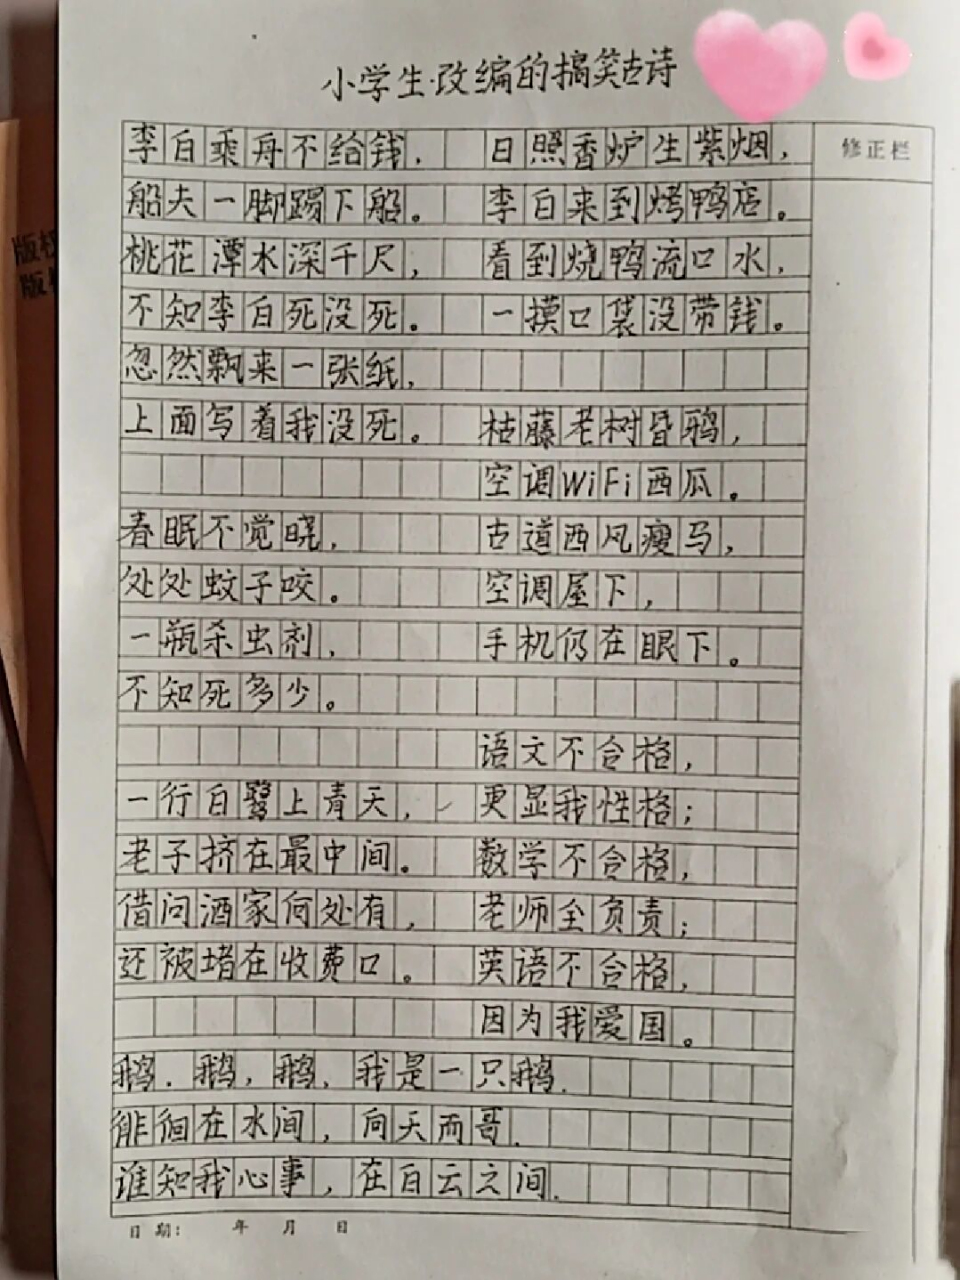 小学生改编的搞笑古诗
修正栏
李白乘舟不给钱，
船夫一脚蹋下船。
桃花潭水深千尺，
不知李白死没死。
忽然飘来一张纸，
上面写着我没死。
春眠不觉晓，
处处蚊子咬。
一瓶杀虫剂，
不知死多少。
一行白鹭上青天，
老子挤在最中间。
借问酒家何处有，
还被堵在收费口。
日照香炉生紫烟，
李白来到烤鸭店。
看到烧鸭流口水，
一摸口袋没带钱。
枯藤老树昏鸦，
空调WiFi西瓜。
古道西风瘦马，
空调屋下，
手机仍在眼下。
语文不合格，
更显我性格；
数学不合格，
老师全负责；
英语不合格，
因为我爱国。
鹅，鹅，鹅，我是一只鹅.
徘徊在水间，向天而哥.
谁知我心事，在白云之间.
日期： 年 月 日
版权
版